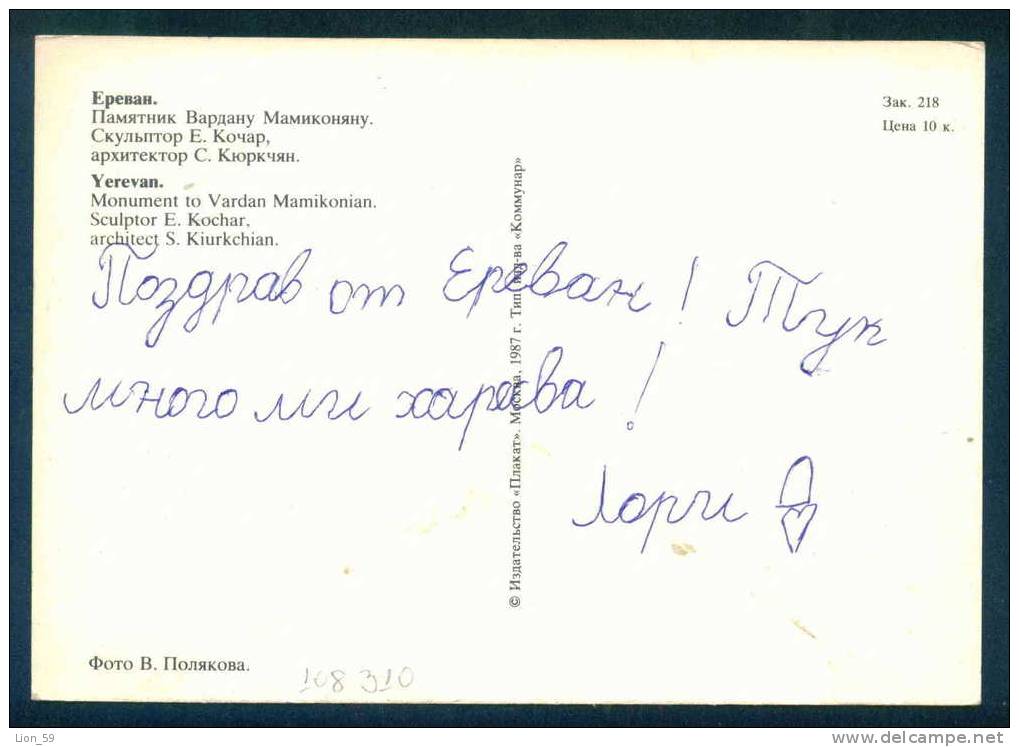 Ереван.
Памятник Вардану Мамиконяну.
Скульптор Е. Кочар,
архитектор С. Кюркчян.
Yerevan.
Monument to Vardan Mamikonian.
Sculptor E. Kochar,
architect S. Kiurkchian.
Зак. 218
Цена 10 к.
Поздрав от Ереван! Тук
много ми харесва!
© Издательство «Плакат». Москва, 1987 г. Тип. изд-ва «Коммунар»
Фото В. Полякова.
108 310
Lion_59
www.delcampe.net